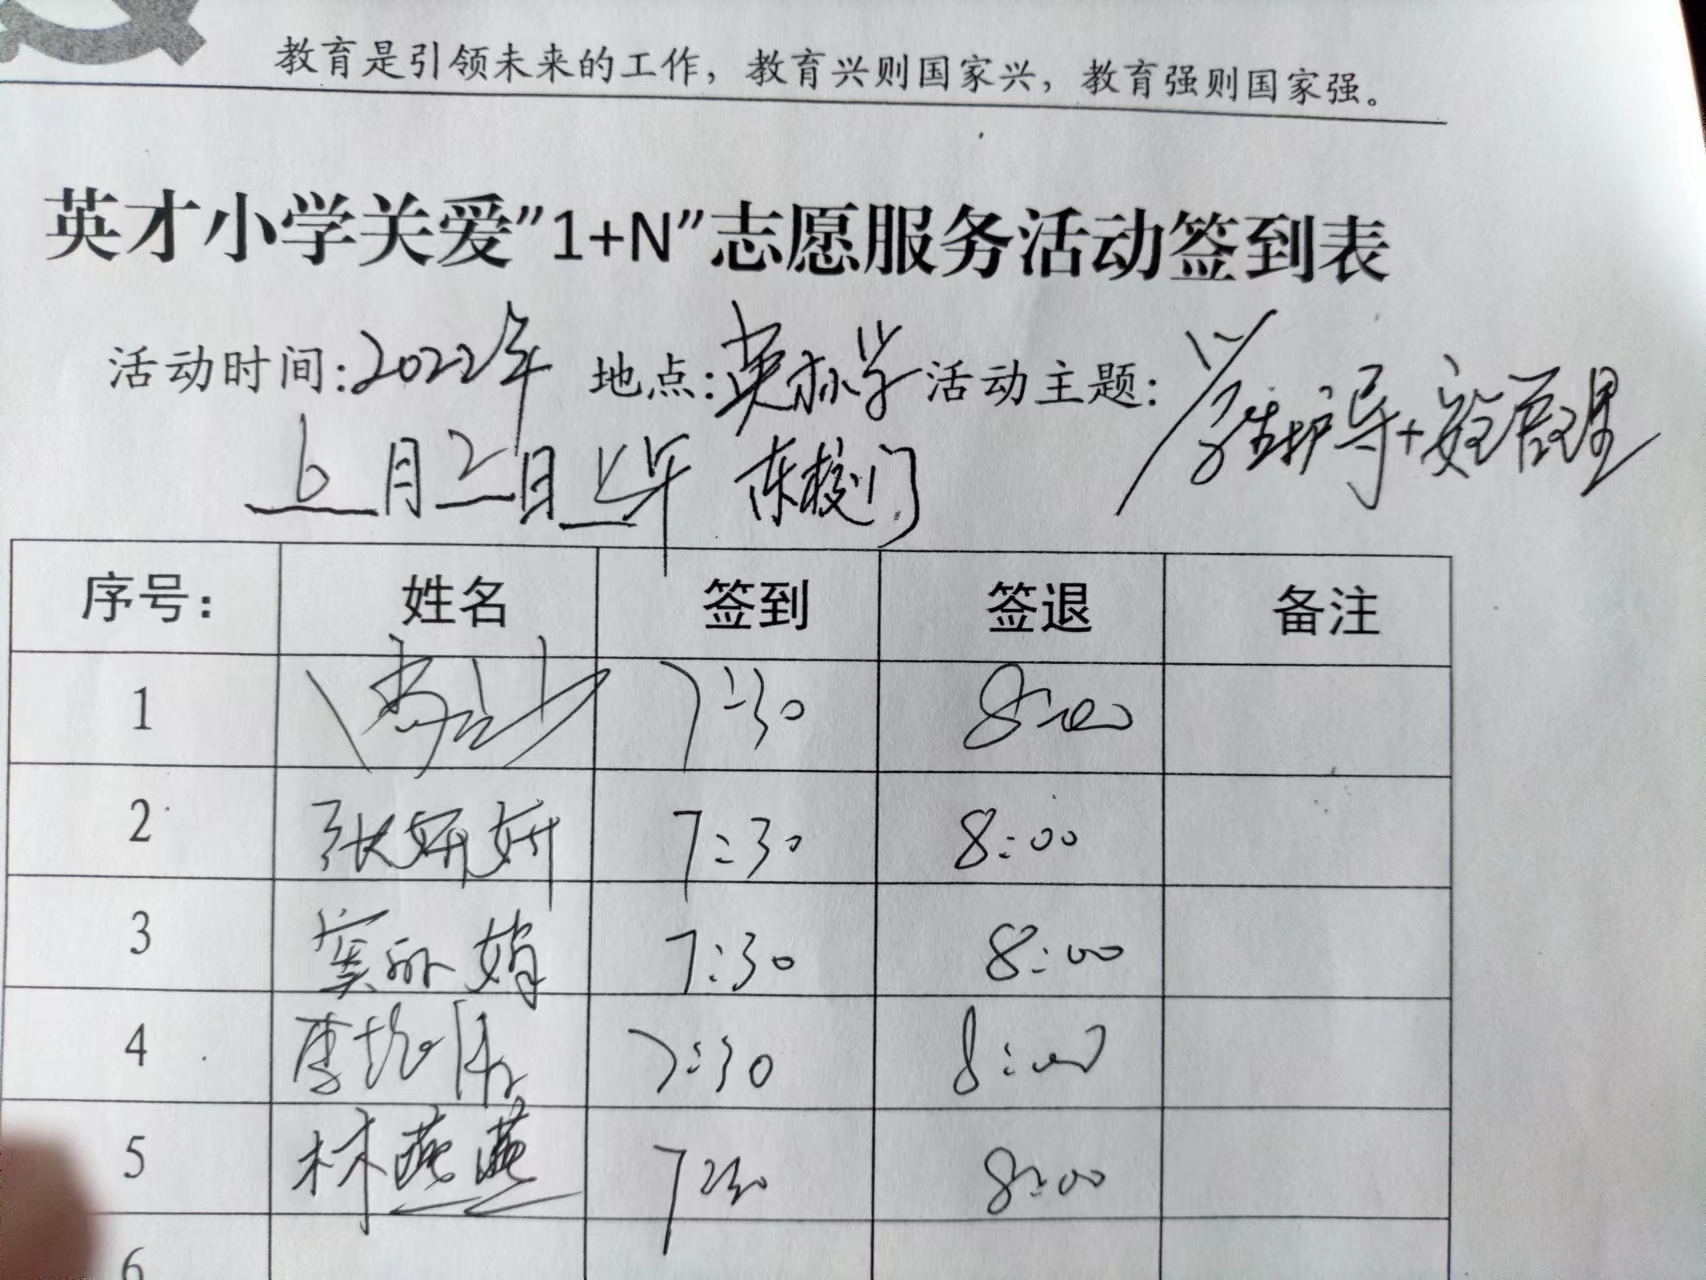 教育是引领未来的工作，教育兴则国家兴，教育强则国家强。
英才小学关爱”1+N”志愿服务活动签到表
活动时间:2022年 地点:英才小学 活动主题:
6月2日上午 东校门 学生护导+安全管理
序号: 姓名 签到 签退 备注
1 7:30 8:00
2 张妍妍 7:30 8:00
3 窦丽娟 7:30 8:00
4 李 7:30 8:00
5 林燕燕 7:30 8:00
6